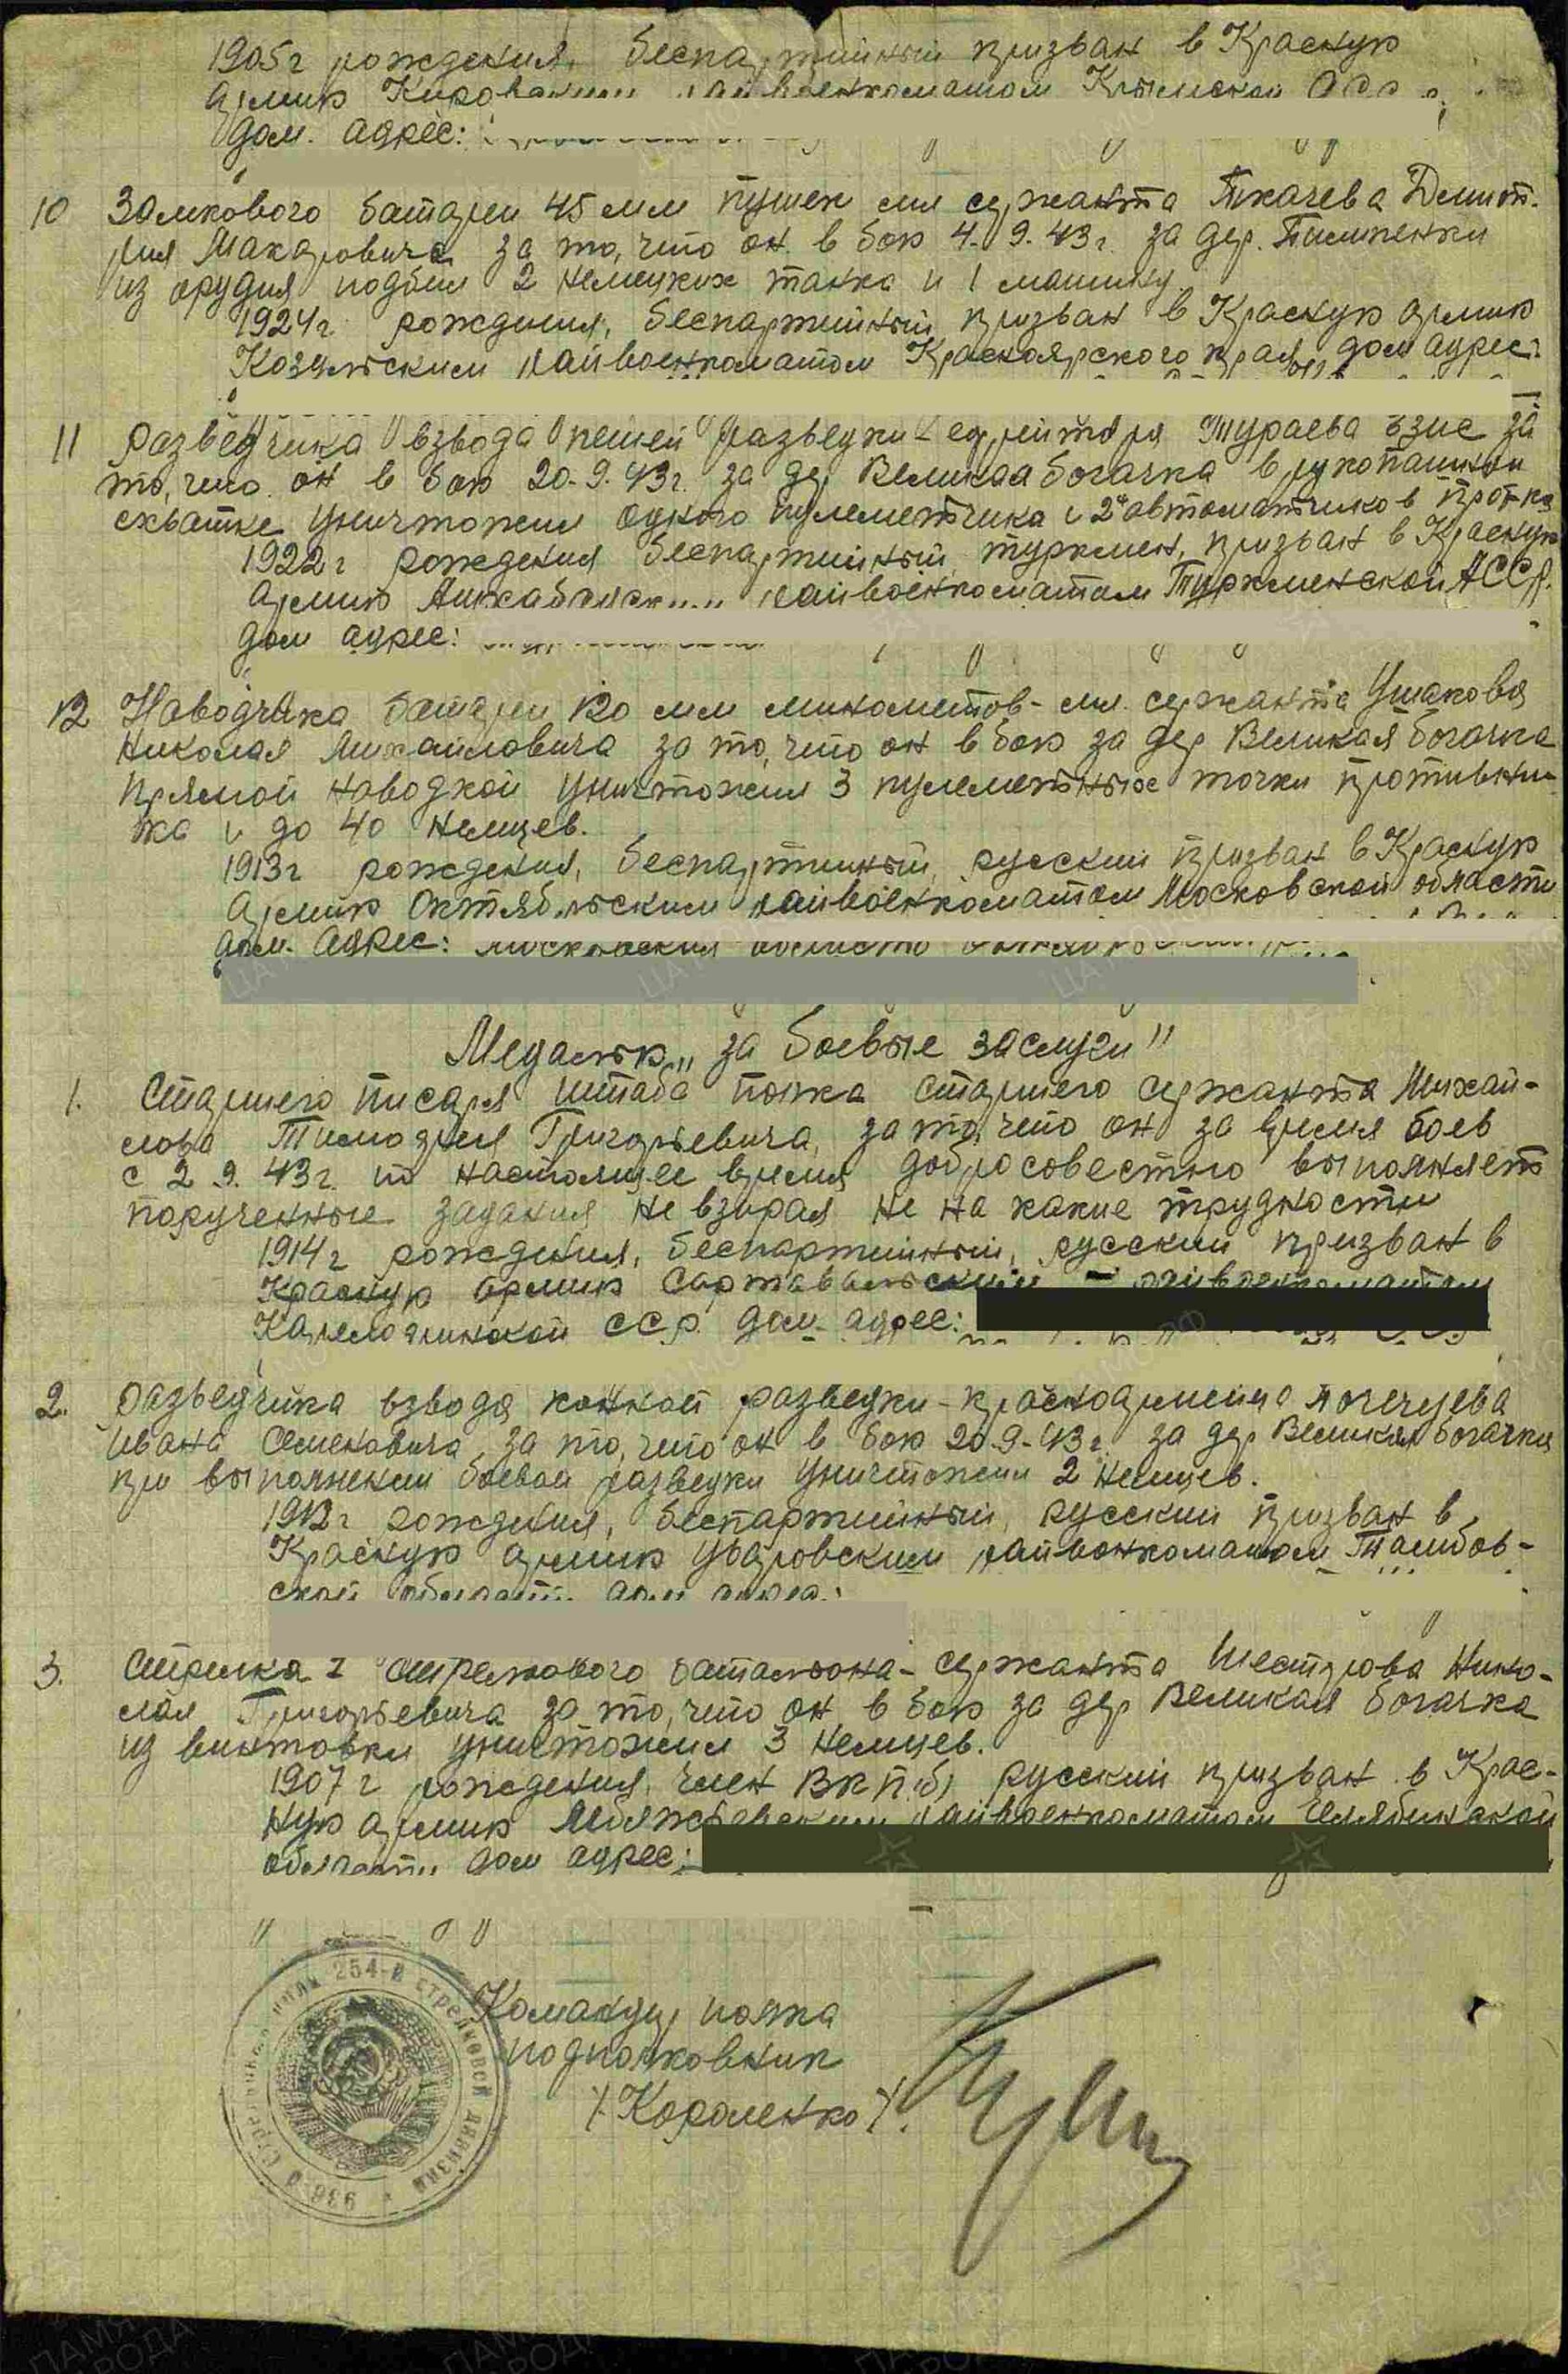 1905г рождения, беспартийный призван в Красную
Армию Кировским райвоенкоматом Крымской АССР
дом. адрес:
10 Замкового батареи 45 мм пушек мл сержанта Ткачева Дмит-
рия Макаровича за то, что он в бою 4.9.43г. за дер.
из орудия подбил 2 немецких танка и 1 машину
1924г рождения, беспартийный, призван в Красную армию
Козульским райвоенкоматом Красноярского края, дом адрес:
11 Разведчика взвода пешей разведки - ефрейтора Тураева за
то, что он в бою 20.9.43г. за дер Великая богачка в рукопашной
схватке уничтожил одного пулеметчика и 2х автоматчиков прот-ка
1922г рождения беспартийный, туркмен, призван в Красную
Армию райвоенкоматом Туркменской АССР.
дом адрес:
12 Наводчика батареи 120 мм минометов - мл. сержанта Ушакова
Николая Михайловича за то, что он в бою за дер Великая богачка
прямой наводкой уничтожил 3 пулеметных точки противни-
ка и до 40 немцев.
1913г рождения, беспартийный, русский призван в Красную
Армию Октябрьским райвоенкоматом Московской области
дом. адрес: Московская область
Медалью „за боевые заслуги"
1. Старшего писаря штаба полка старшего сержанта Михай-
лова Григорьевича, за то, что он за время боев
с 2.9.43г. по настоящее время добросовестно выполняет
порученные задания не взирая не на какие трудности
1914г рождения, беспартийный, русский призван в
Красную армию Сортавальским - райвоенкоматом
Карелофинской ССР. дом. адрес:
2. Разведчика взвода конной разведки - красноармейца
Ивана Семеновича, за то, что он в бою 20.9.43г. за дер Великая богачка
при выполнении боевой разведки уничтожил 2 немцев.
1912г рождения, беспартийный, русский призван в
Красную армию Уваровским райвоенкоматом Тамбов-
ской области дом адрес:
3. Стрелка 1 стрелкового батальона - сержанта Шестерова Нико-
лая Григорьевича за то, что он в бою за дер Великая богачка
из винтовки уничтожил 3 немцев.
1907г рождения, член ВКП(б) русский призван в Крас-
ную армию райвоенкоматом Челябинской
области дом адрес:
Командир полка
подполковник
/Короленко/.
936-й стрелковый полк 254-й стрелковой дивизии